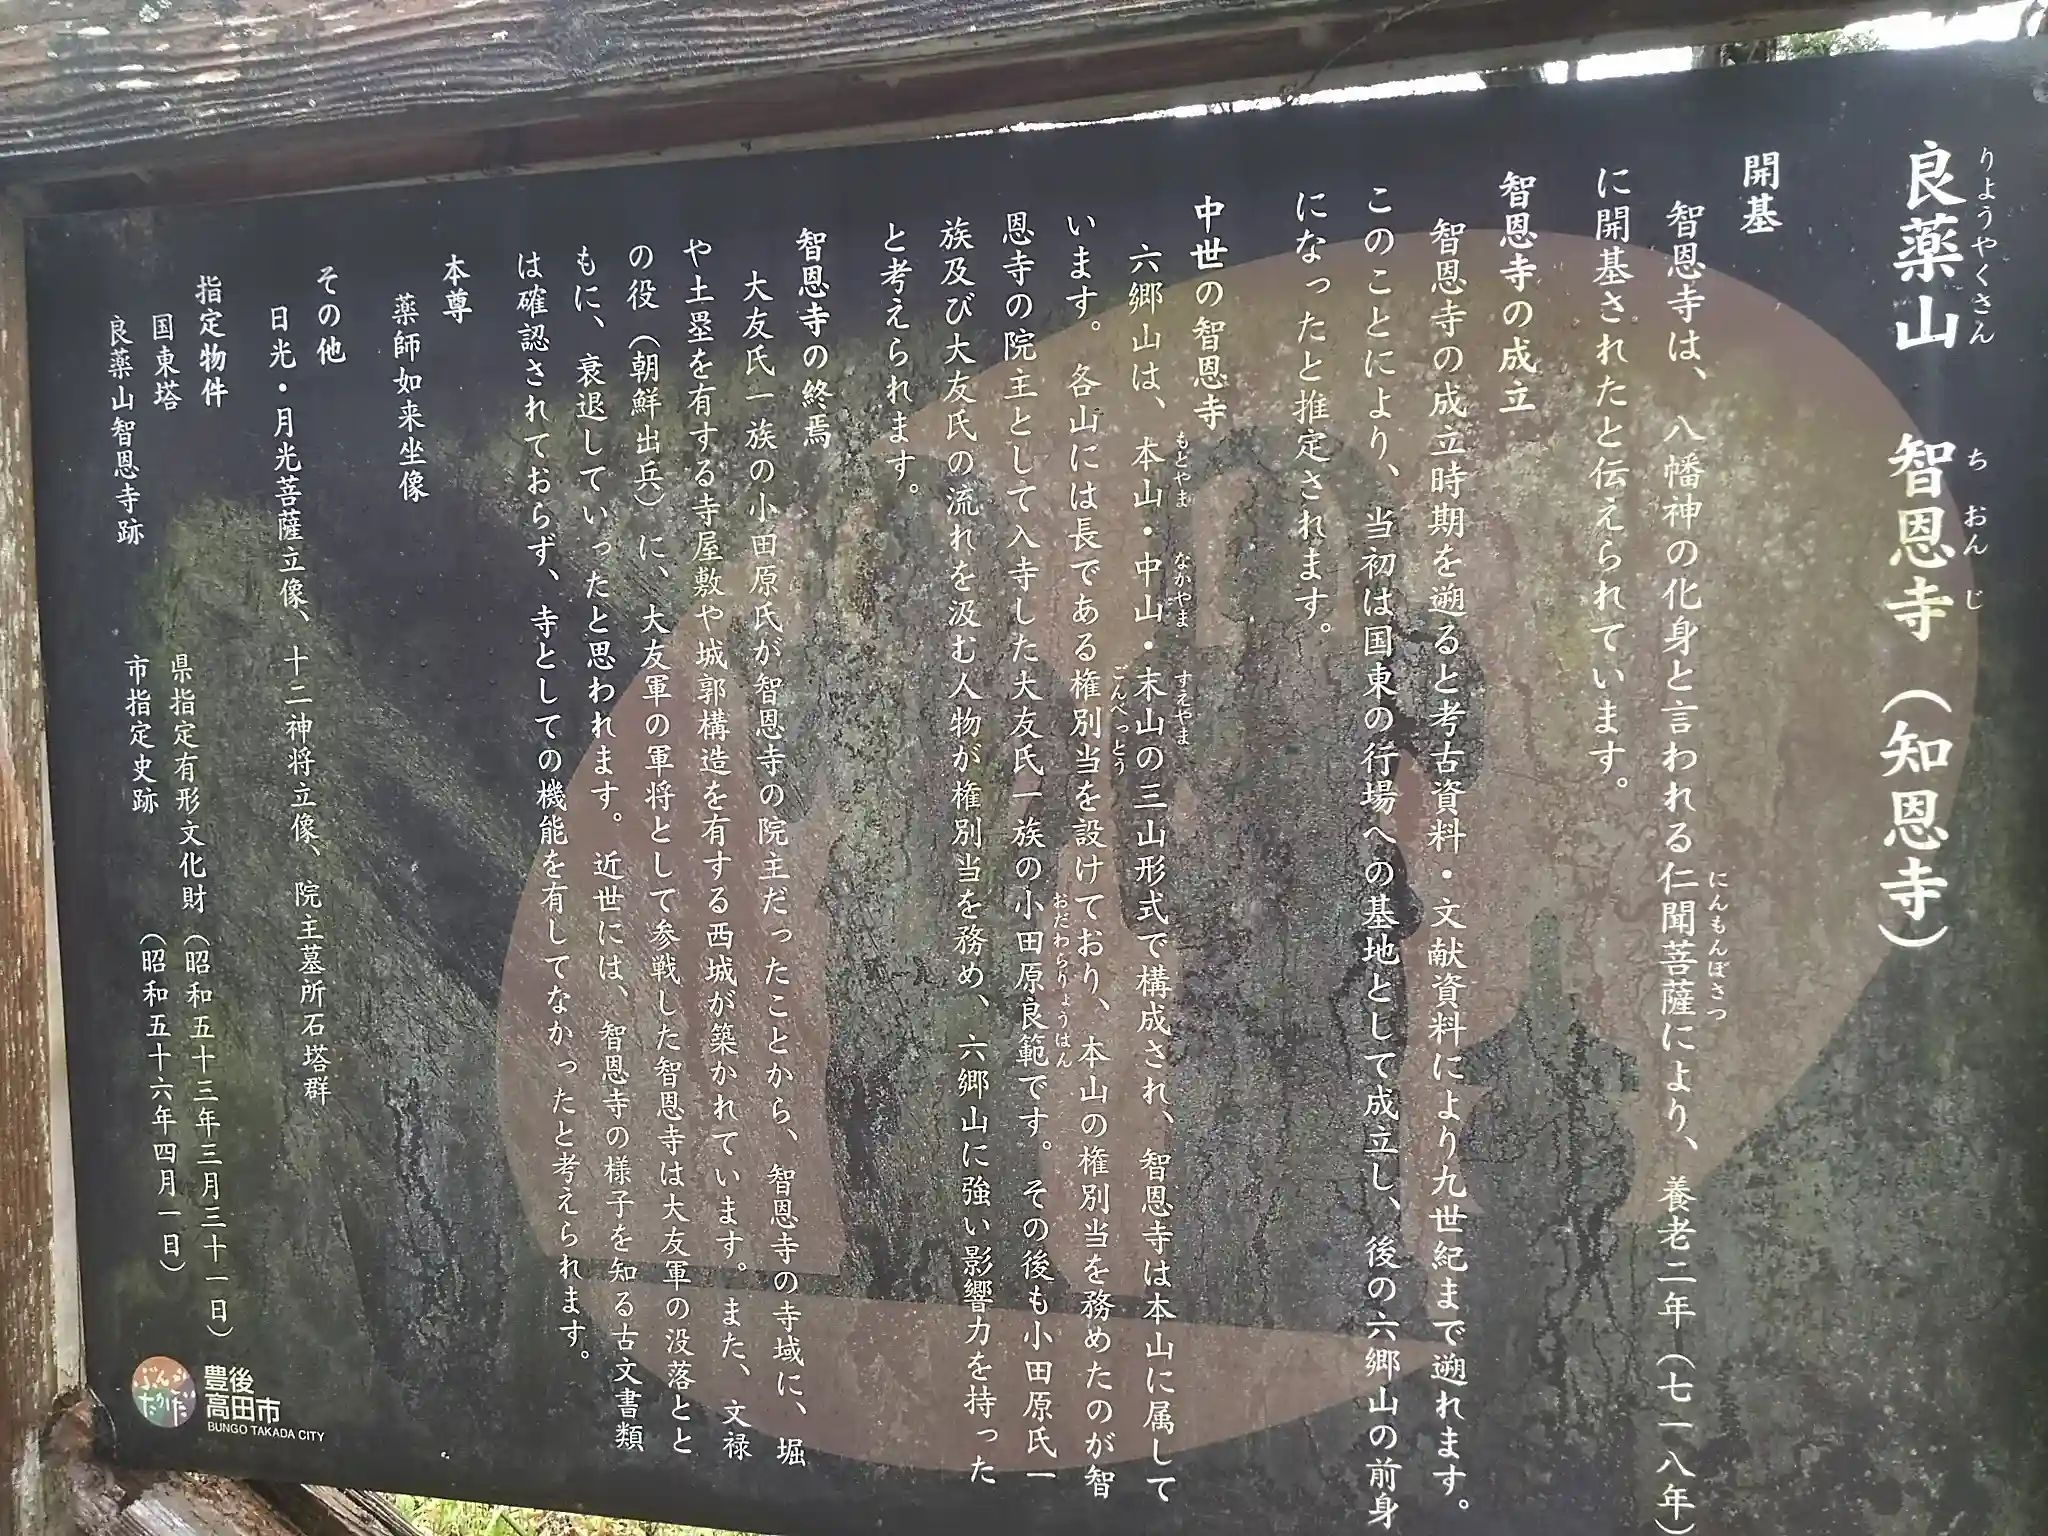 良薬山　智恩寺（知恩寺）
りようやくさん　ちおんじ
開基
智恩寺は、八幡神の化身と言われる仁聞菩薩により、養老二年（七一八年）
にんもんぼさつ
に開基されたと伝えられています。
智恩寺の成立
智恩寺の成立時期を遡ると考古資料・文献資料により九世紀まで遡れます。
このことにより、当初は国東の行場への基地として成立し、後の六郷山の前身
になったと推定されます。
中世の智恩寺
六郷山は、本山・中山・末山の三山形式で構成され、智恩寺は本山に属して
もとやま　なかやま　すえやま
います。各山には長である権別当を設けており、本山の権別当を務めたのが智
ごんべっとう
恩寺の院主として入寺した大友氏一族の小田原良範です。その後も小田原氏一
おだわらりょうはん
族及び大友氏の流れを汲む人物が権別当を務め、六郷山に強い影響力を持った
と考えられます。
智恩寺の終焉
大友氏一族の小田原氏が智恩寺の院主だったことから、智恩寺の寺域に、堀
や土塁を有する寺屋敷や城郭構造を有する西城が築かれています。また、文禄
の役（朝鮮出兵）に、大友軍の軍将として参戦した智恩寺は大友軍の没落とと
もに、衰退していったと思われます。近世には、智恩寺の様子を知る古文書類
は確認されておらず、寺としての機能を有してなかったと考えられます。
本尊
薬師如来坐像
その他
日光・月光菩薩立像、十二神将立像、院主墓所石塔群
指定物件
国東塔　県指定有形文化財（昭和五十三年三月三十一日）
良薬山智恩寺跡　市指定史跡（昭和五十六年四月一日）
ぶんご
たかだ
豊後
高田市
BUNGO TAKADA CITY